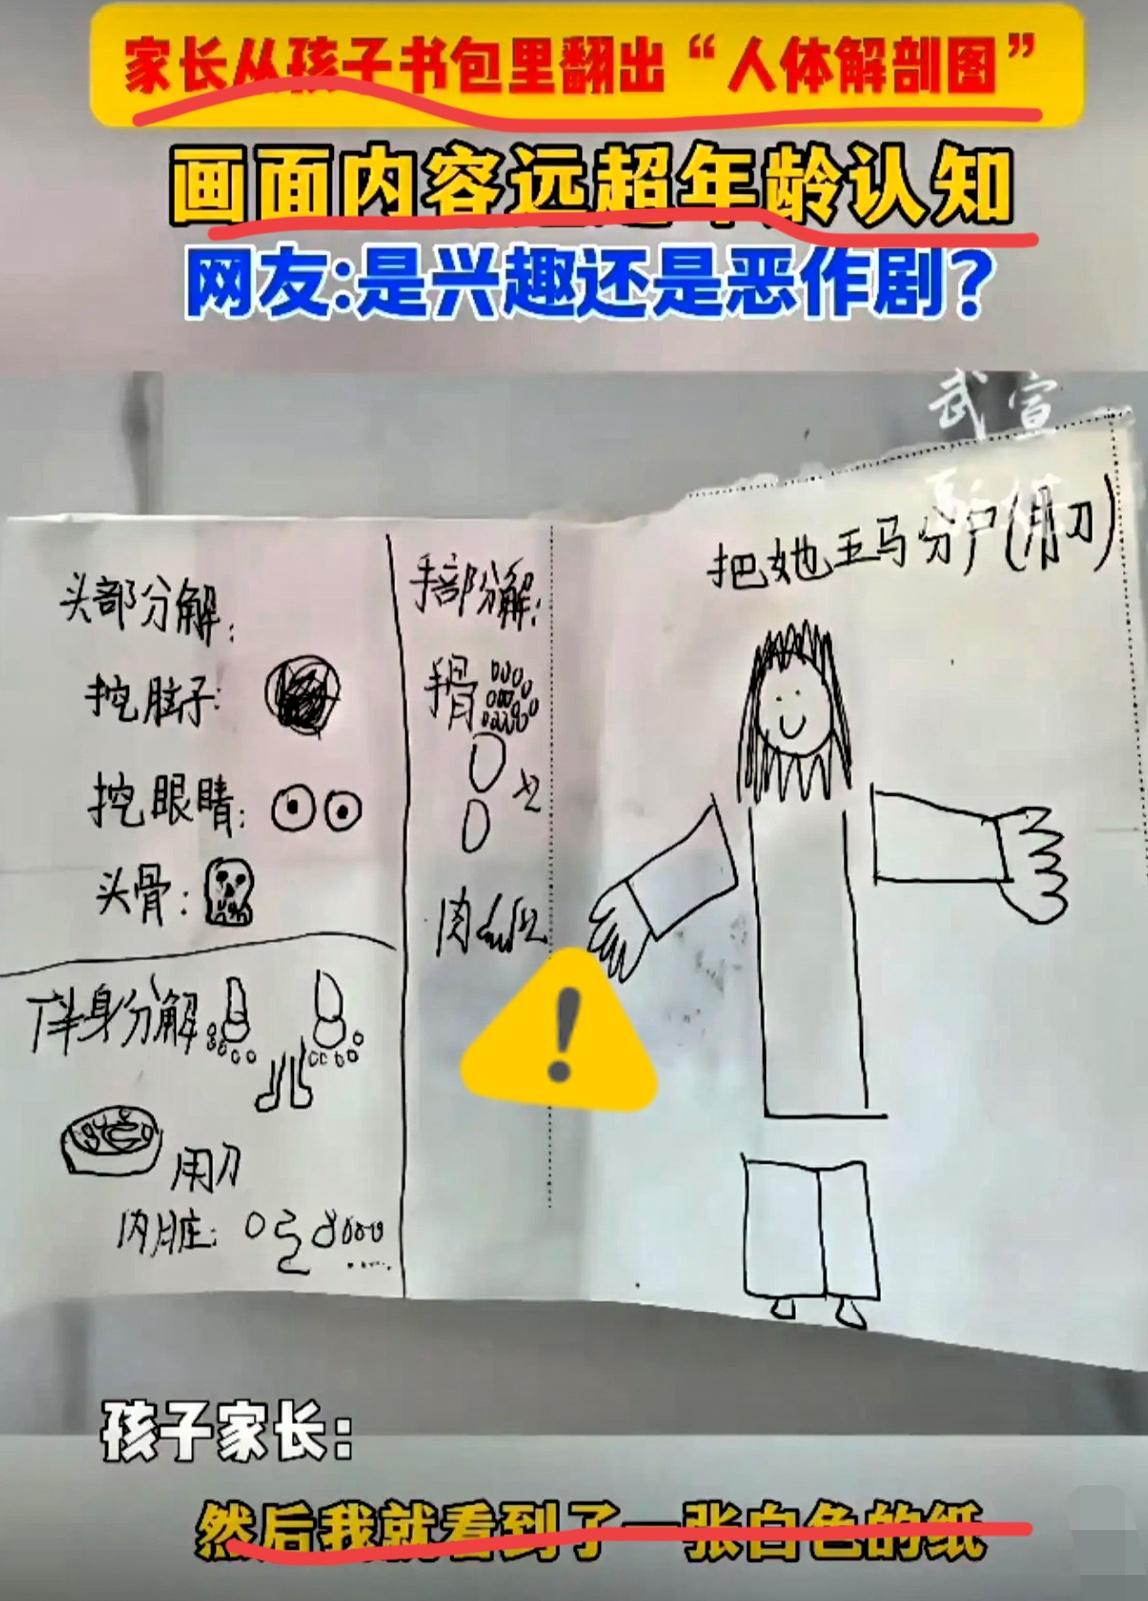 家长从孩子书包里翻出“人体解剖图”
画面内容远超年龄认知
网友:是兴趣还是恶作剧?
武宣
把她五马分尸(用刀)
头部分解:
挖脑子:
挖眼睛:
头骨:
手部分解:
手骨
肉
下半身分解
用刀
内脏:
孩子家长:
然后我就看到了一张白色的纸